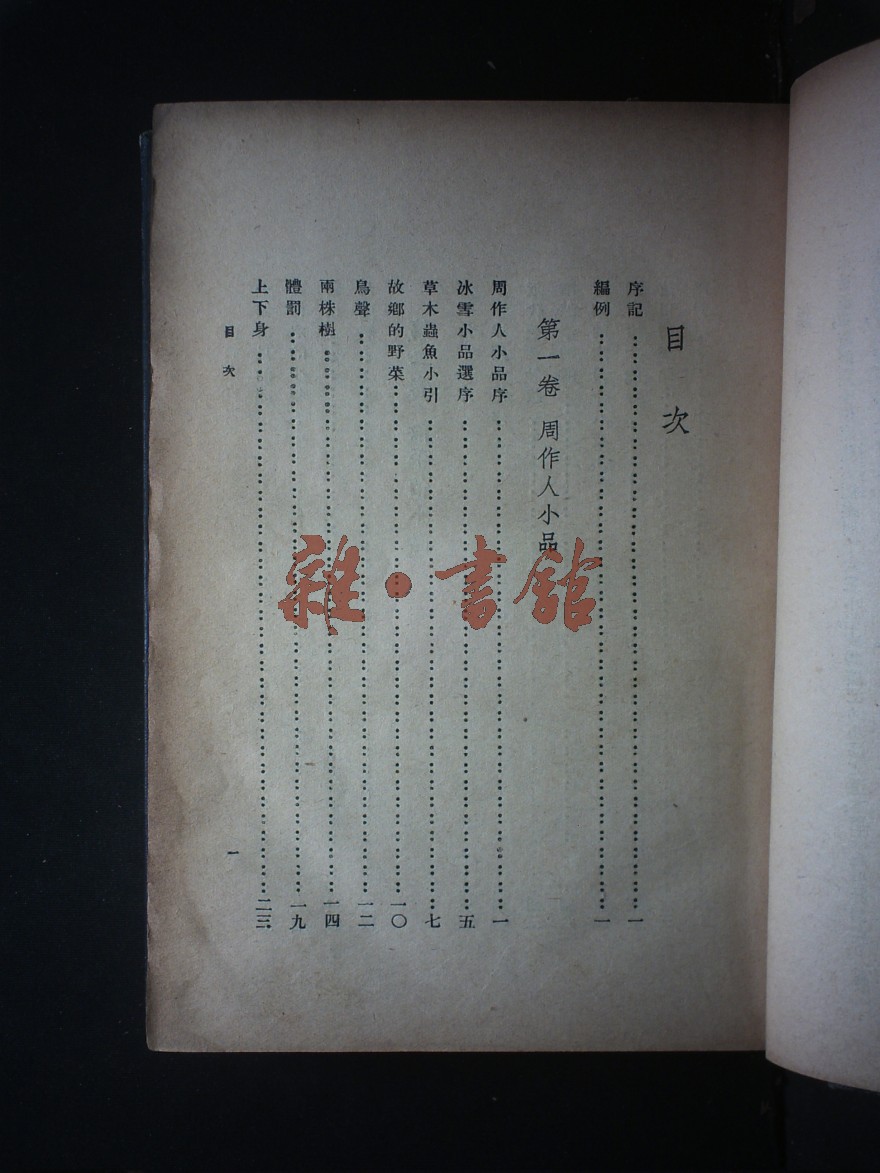 目次
序記……一
編例……一
第一卷 周作人小品
周作人小品序……一
冰雪小品選序……五
草木蟲魚小引……七
故鄉的野菜……一〇
鳥聲……一二
兩株樹……一四
體罰……一九
上下身……二三
目次
一
雜·書館